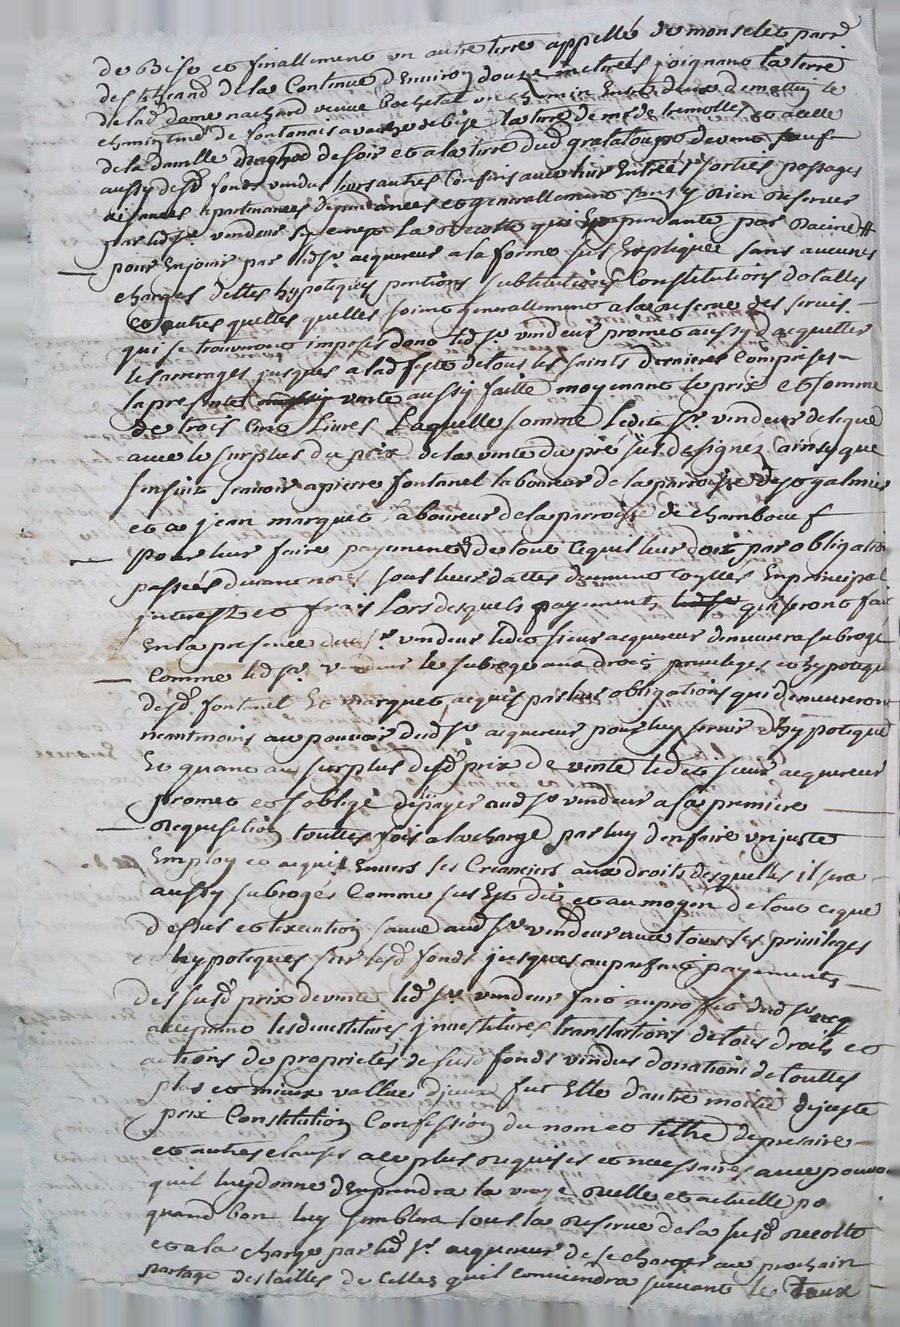 de Bise et finallement un autre terre appellé de monselet parr
de la Contenue d'Environ douze metreés joignant la terre
de lad dame nachard venue Rochetat un chemin Entre deux de mattin le
chemin de fontanais a vache de bise la terre de mr de tremolles et a celle
de la de soir et a la terre dud grataloup devent sauf
aussy desd fonds vendus leurs autres Confins avec leurs Entreés sorties passages
aizances apartenances dependances et generallement sans y Rien Reserver
par led sr vendeur sy ce nept la Recolte qui Est pendante par Racine
pour En jouir par led sr acquereur a la forme sus Expliqueé sans aucunes
charges dettes hypotiques pentions substitutions Constitutions dotalles
et autres quelles quelles soient generallement a la reserve des servis
qui se trouveront imposes dont led sr vendeur promet aussy d'acquetter
les arrerages jusques a lad feste de tous les saints derniere Comprise
la presente vente aussy faitte moyenant le prix et somme
de trois Cent Livres Laquelle somme Ledit sr vendeur delegue
avec le surplus du prix de la vente du pré sus designez ainsy que
sensuit scavoir a pierre fontanel laboureur de la parroisse de st galmier
et a jean marquet laboureur de la parroisse de chambœuf
pour leur faire payement de tout Cequil leur doit par obligation
passeés devant nores sous leur dattes duement Con͞lleés En principal
interest et frais Lors desquels payements qui seront fait
En la presence dud sr vendeur ledit sieur acquereur demeurera subrogé
Comme led sr vendeur le subroge aux droits privileges et hypoteque
desd fontanel Et marquet acquis par les obligations qui demeureront
neantmoins au pouvoir dud sr acquereur pour luy servir d'hypoteque
Et quant au surplus desd prix de vente ledit sieur acquereur
promet et s'oblige de payer aud sr vendeur a sa premiere
Requisition touttes fois a la charge par luy d'en faire un juste
Employ et acquit Envers ses Creanciers aux droits desquelles il sera
aussy subrogés Comme sus Est dit et au moyen de tout ceque
dessus et Execution sauve aud sr vendeur avec tous les privileges
et hypotiques sur lesd fonds jusques au parfait payements
des susd prix de vente led sr vendeur fait au profit dud sr acq
acceptant les devestitures investitures translations de tous droits et
actions de proprietés de susd fonds vendus donations de touttes
plus et mieux vallue d'jceux fut Elle d'autre moitié de juste
prix Constitution Confession du nom et tiltre de precaire
et autres clauses a ce plus requises et necessaires avec pouvoir
quil luy donne d'En prendre la vraye reelle et actuelle po
quand bon luy semblera sous la Reserve de la susd recolte
et a la charge par led sr acquereur de se charger au prochain
partage des tailles de Celles quil conviendra suivant le taux